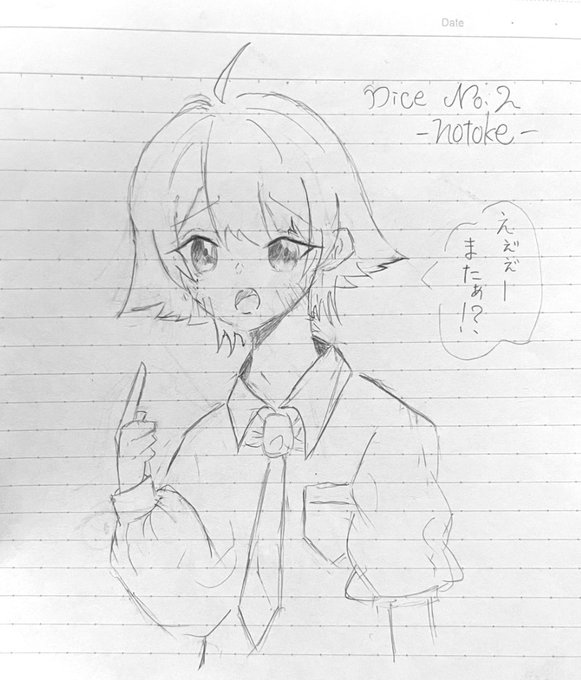 Date
Dice No.2
-notoke-
えぇぇー
またぁ!?